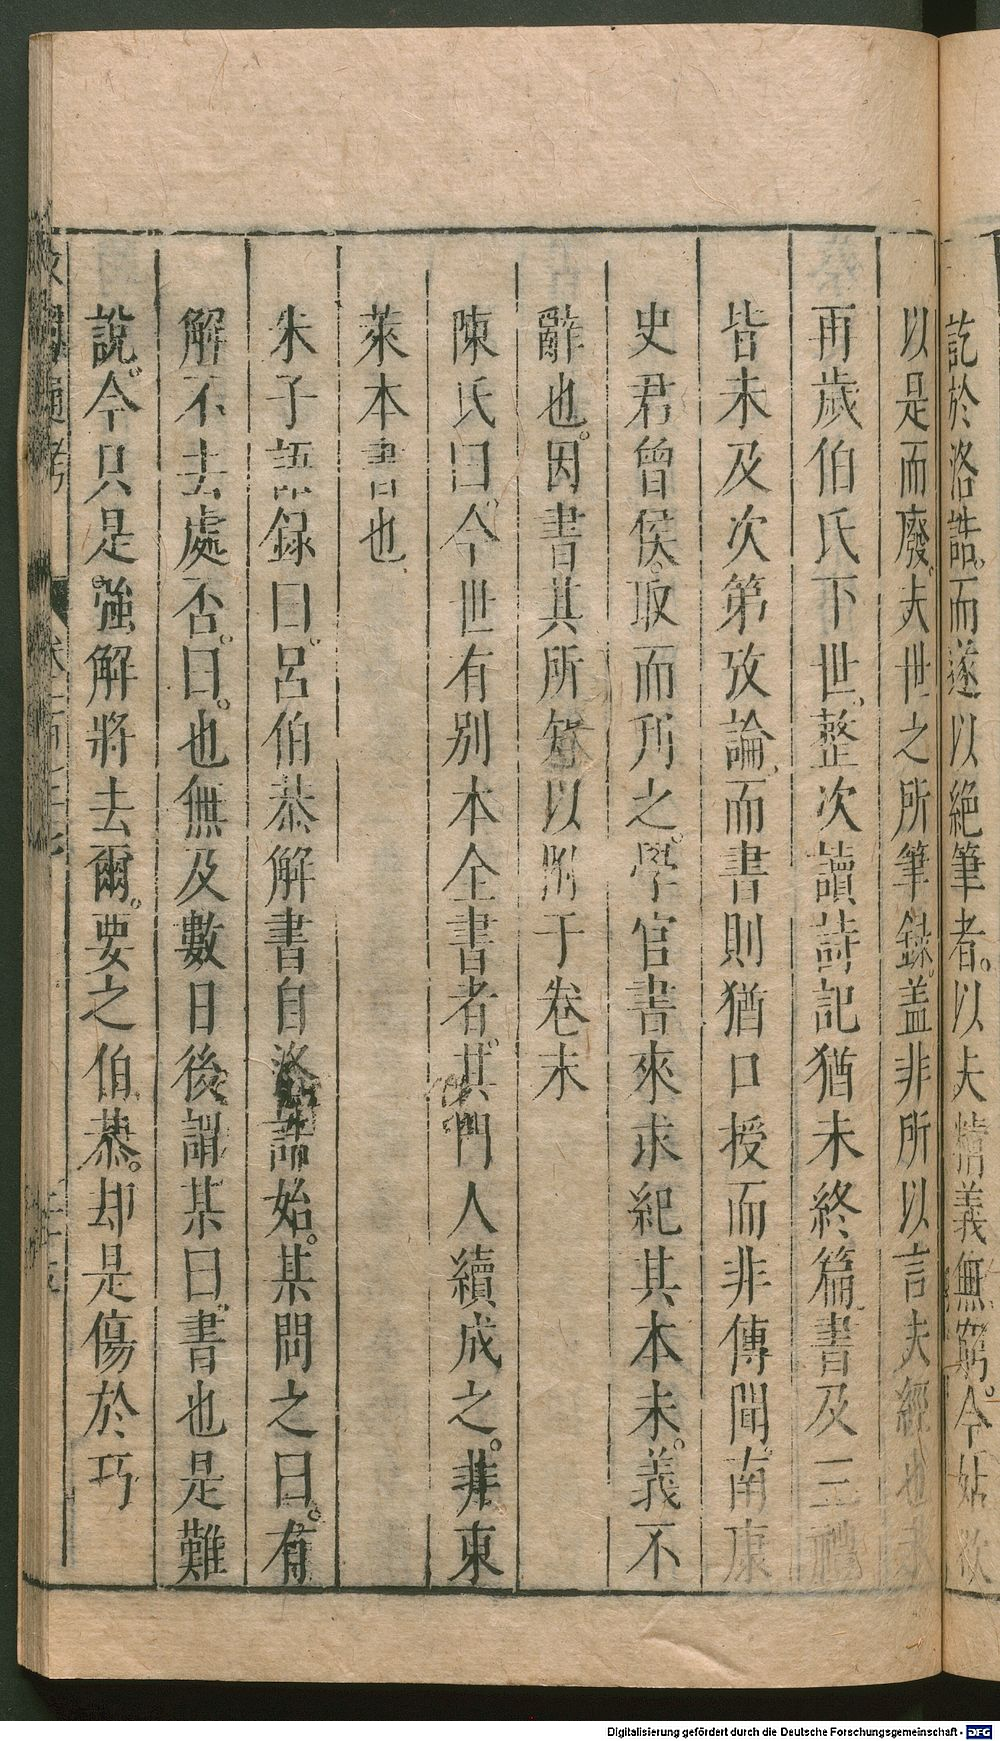 訖於洛誥而遂以絕筆者。以夫精義無窮。今姑欲
以是而廢。夫世之所筆錄。蓋非所以言夫經也
再歲伯氏下世整次讀詩記猶未終篇書及三禮
皆未及次第攷論而書則猶口授而非傳聞南康
史君曾侯。取而刋之。學官書來求紀其本末。義不
辭也。因書其所知以附于卷末
陳氏曰。今世有別本全書者。其門人續成之。非東
萊本書也
朱子語錄曰。呂伯恭解書自洛誥始。某問之曰。有
解不去處否。曰。也無及數日後謂某曰。書也是難
說。今只是強解將去爾。要之伯恭。却是傷於巧
Digitalisierung gefördert durch die Deutsche Forschungsgemeinschaft - DFG